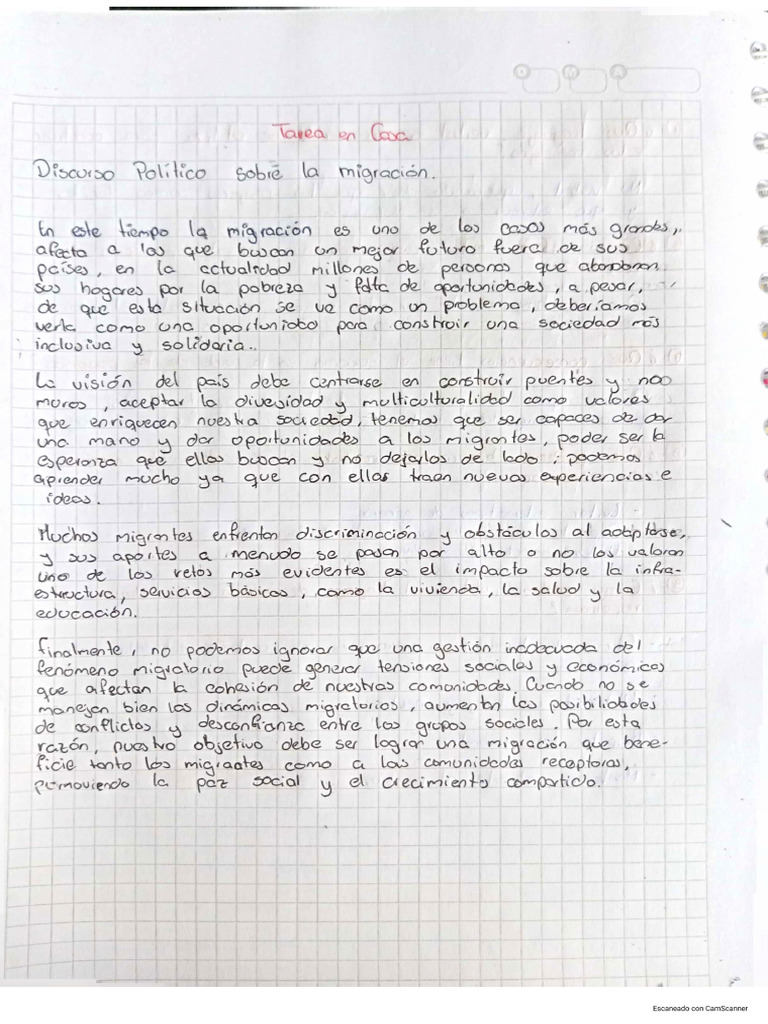 Tarea en Casa
Discurso Político sobre la migración.
En este tiempo la migración es uno de los casos más grandes,
afecta a los que buscan un mejor futuro fuera de sus
países, en la actualidad millones de personas que abandonan
sus hogares por la pobreza y falta de oportunidades, a pesar,
de que esta situación se ve como un problema, deberíamos
verla como una oportunidad para construir una sociedad más
inclusiva y solidaria.
La visión del país debe centrarse en construir puentes y no
muros, aceptar la diversidad y multiculturalidad como valores
que enriquecen nuestra sociedad, tenemos que ser capaces de dar
una mano y dar oportunidades a los migrantes, poder ser la
esperanza que ellos buscan y no dejarlos de lado; podemos
aprender mucho ya que con ellos traen nuevas experiencias e
ideas.
Muchos migrantes enfrentan discriminación y obstáculos al adaptarse,
y sus aportes a menudo se pasan por alto o no los valoran
uno de los retos más evidentes es el impacto sobre la infra-
estructura, servicios básicos, como la vivienda, la salud y la
educación.
Finalmente, no podemos ignorar que una gestión inadecuada del
fenómeno migratorio puede generar tensiones sociales y económicas
que afectan la cohesión de nuestras comunidades. Cuando no se
manejan bien las dinámicas migratorias, aumentan las posibilidades
de conflictos y desconfianza entre los grupos sociales. Por esta
razón, nuestro objetivo debe ser lograr una migración que bene-
ficie tanto los migrantes como a las comunidades receptoras,
pomoviendo la paz social y el crecimiento compartido.
Escaneado con CamScanner